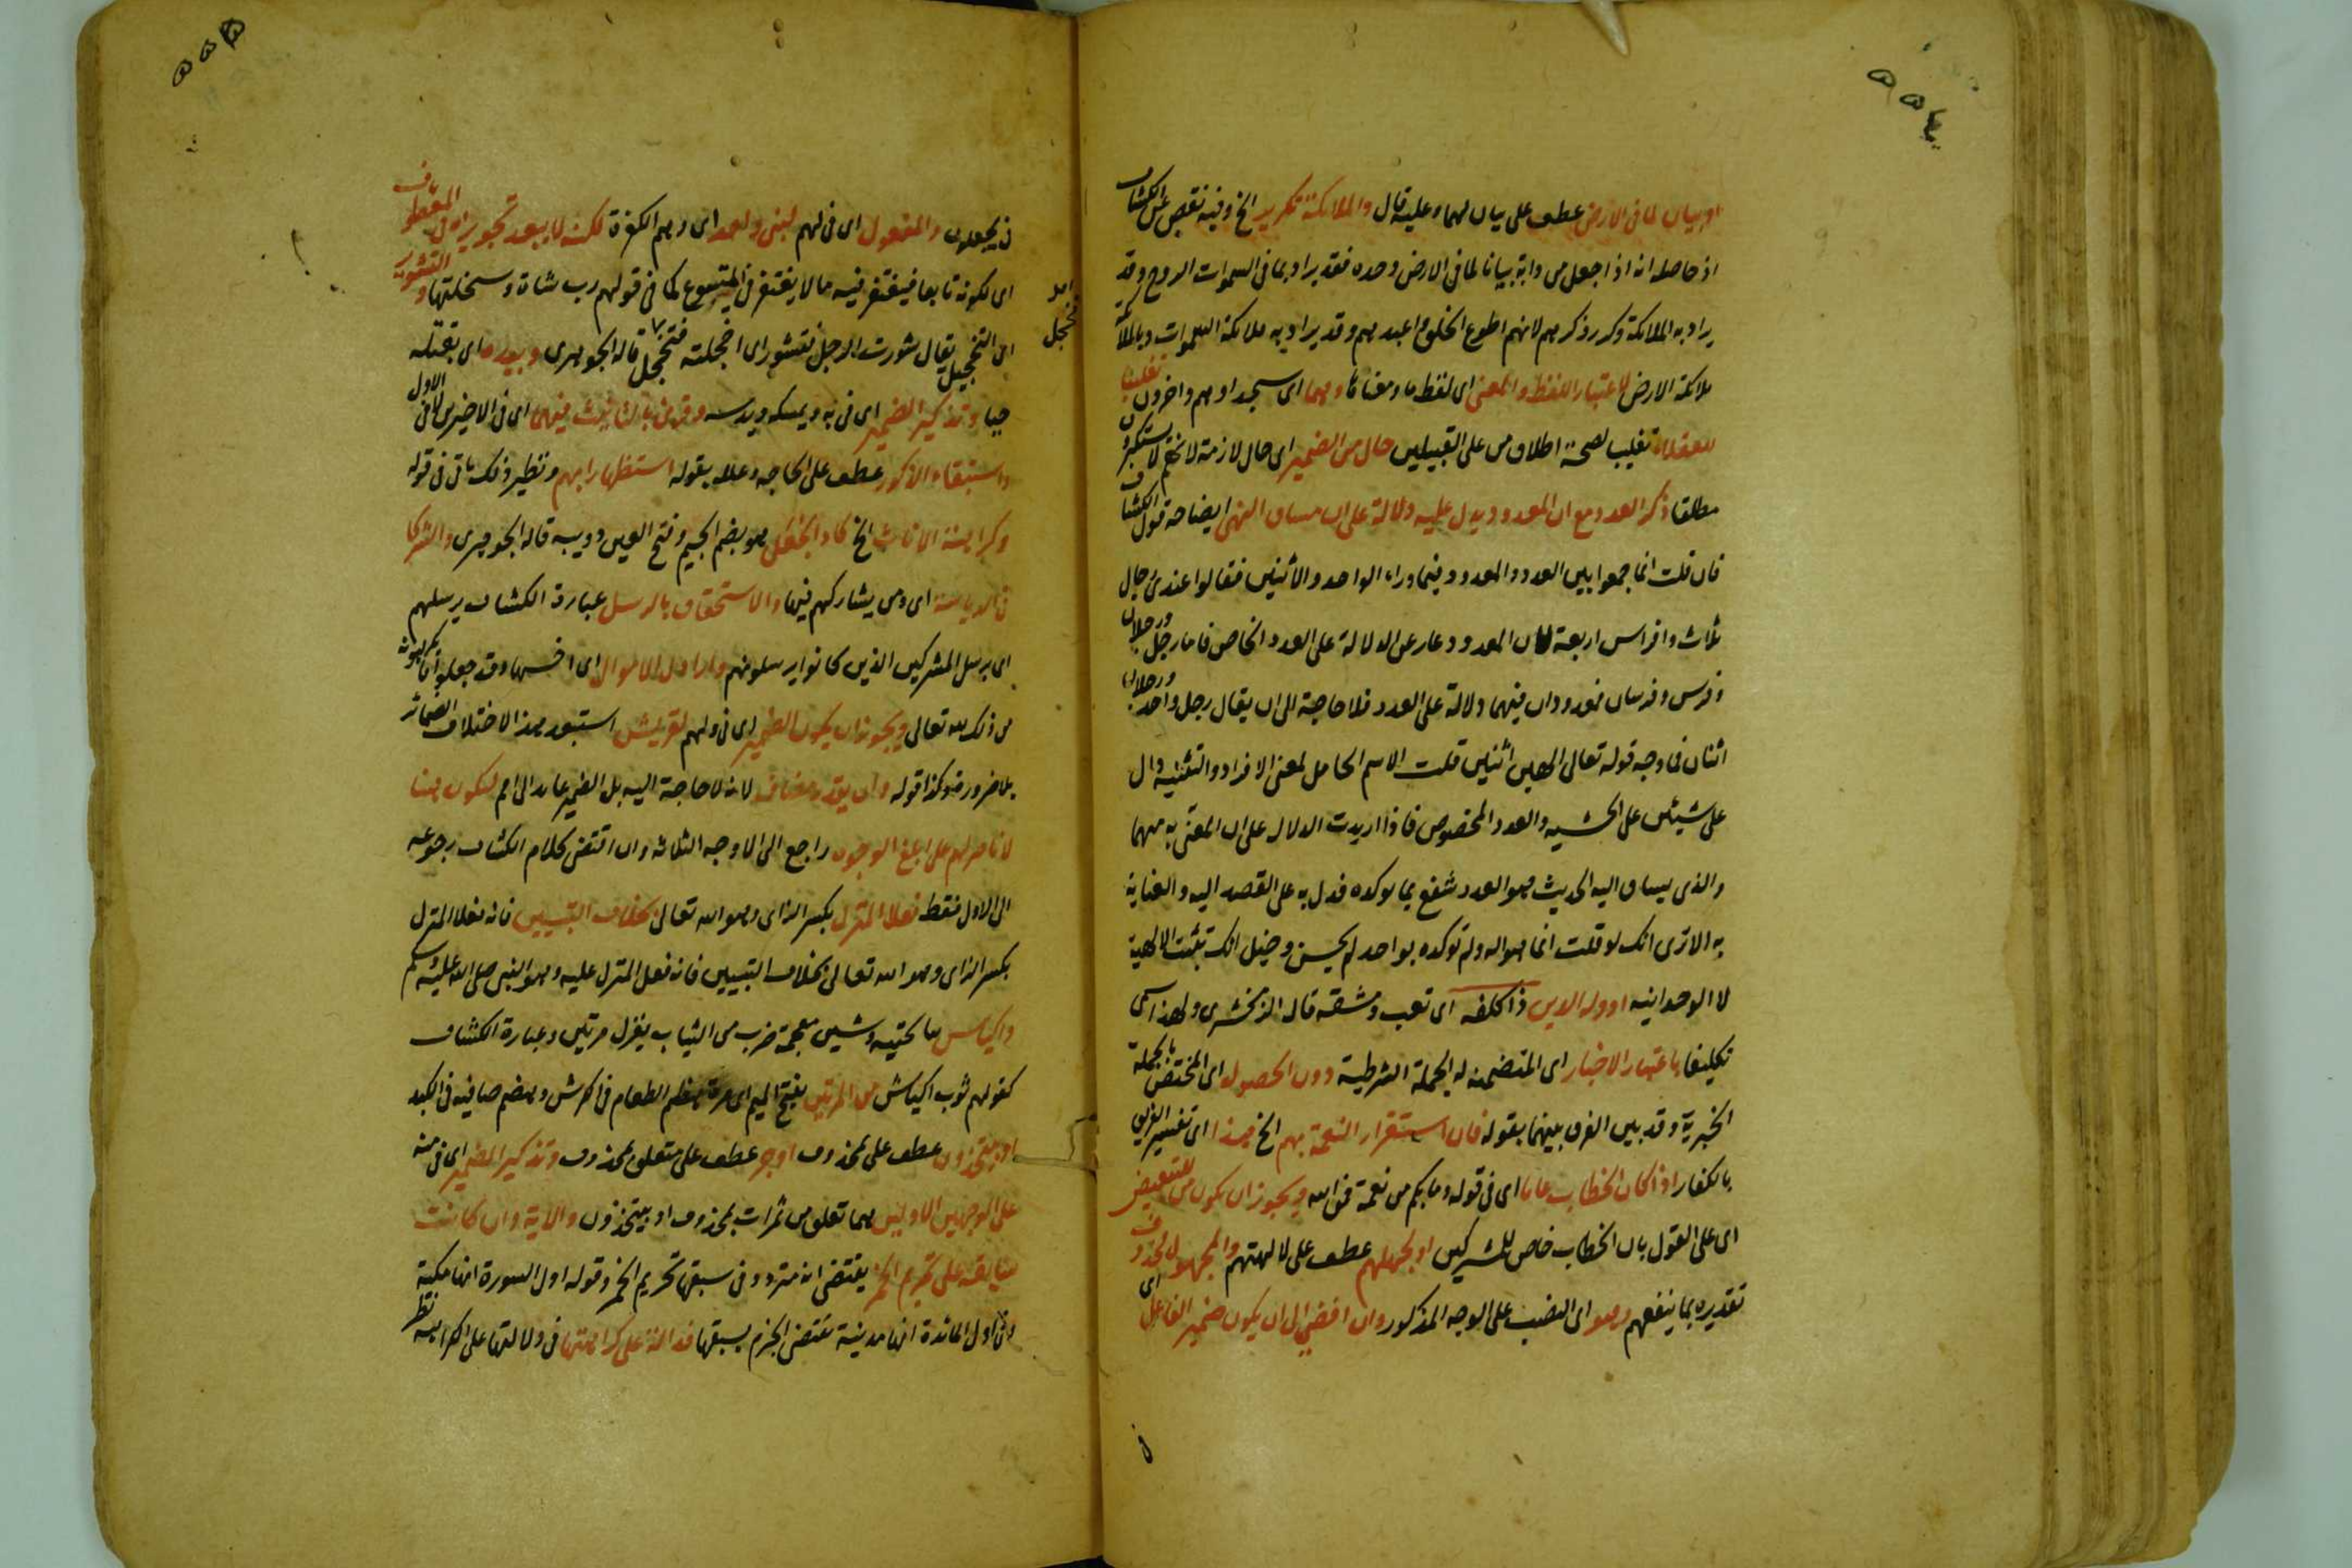 او بيان لما فى الارض عطف على بيان لهما وعليه قال والملائكة تكرير الخ وفيه نقص عن الكشاف
اذ حاصله انه اذا جعل من دابة بيانا لما فى الارض وحده فقد يراد بما فى السموات الروح وقد
يراد به الملائكة وكرر ذكرهم لانهم اطوع الخلق واعبدهم وقد يراد به ملائكة السموات وبالملائكة
ملائكة الارض لاعتبار اللفظ والمعنى اى لفظ ما ومعناها وهما اى سجدا وهم داخرون تغليبا
للعقلاء تغليب لصحة اطلاق من على القبيلين حال من الضمير اى حال لازمة لانهم لا يستكبرون
مطلقا ذكر العدد مع ان المعدود يدل عليه دلالة على ان مساق النهى ايضاحه قول الكشاف
فان قلت انما جمعوا بين العدد والمعدود فيما وراء الواحد والاثنين فقالوا عندى رجال
ثلاث وافراس اربعة لان المعدود عار عن الدلالة على العدد الخاص فاما رجل ورجلان
وفرس وفرسان فمعدودان فيهما دلالة على العدد فلا حاجة الى ان يقال رجل واحد ورجلان
اثنان فما وجه قوله تعالى الهين اثنين قلت الاسم الحامل لمعنى الافراد والتثنية دال
على شيئين على الجنسيه والعدد المخصوص فاذا اريدت الدلاله على ان المعنى به منهما
والذى يساق اليه الحديث هو العدد شفع بما يوكده فدل به على القصد اليه والعناية
به الا ترى انك لو قلت انما هو اله ولم توكده بواحد لم يحسن وخيل انك تثبت الالهية
لا الوحدانيه اووله الدين ذا كلفه اى تعب ومشقه قاله الزمخشرى ولهذا سمى
تكليفا باعتبار الاخبار اى المتضمنه له الجملة الشرطية دون الحصول اى المختص بالجملة
الخبرية وقد بين الفرق بينهما بقوله فان استقرار النعمة بهم الخ هذا اى تفسير الفريق
بالكفار اذا كان الخطاب عاما اى فى قوله وما بكم من نعمة فمن الله ويجوز ان يكون من للتبعيض
اى على القول بان الخطاب خاص للمشركين او لجهلهم عطف على لالهتهم والمجهول محذوف اى
تقديره بما ينفعهم وهو اى النصب على الوجه المذكور وان افضى الى ان يكون ضمير الفاعل
فى يجعلون والمفعول اى فى لهم لشئ واحد اى وهم الكفرة لكنه لا يبعد تجويزه فى المعطوف
اى لكونه تابعا فيغتفر فيه ما لا يغتفر فى المتبوع كما فى قولهم رب شاة وسخلتها والتشوير
اى التخجيل يقال شورت الرجل فتشور اى اخجلته فتخجل قاله الجوهرى ويئده اى يقتله
حيا وتذكير الضمير اى فى به ويمسكه ويدسه وقرئ بالتانيث فيهما اى فى الاخيرين لا فى الاول
واستبقاء الذكور عطف على الحاجه وعلله بقوله استظهارا بهم ونظير ذلك ياتى فى قوله
وكراهة الاناث الخ كاد الجعل هو بضم الجيم وفتح العين دويبه قاله الجوهرى والشركا
فى الرياسة اى ومن يشاركهم فيها والاستحقاق بالرسل عبارة الكشاف برسلهم
اى برسل المشركين الذين كانوا يرسلونهم واراذل الاموال اى اخسها وقد جعلوا ما يكرهونه
من ذلك لله تعالى ويجوز ان يكون الضمير اى فى ولهم لقريش استبعد هذا لاختلاف الضمائر
بلا ضرورة وكذا قوله وان يقدر مضاف لانه لا حاجة اليه بل الضمير عايد الى امم ليكون نفيا
لا ناصر لهم على ابلغ الوجوه راجع الى الاوجه الثلاثه وان اقتضى كلام الكشاف رجوعه
الى الاول فقط فعلا المنزل بكسر الزاى وهو الله تعالى بخلاف التبيين فانه فعلا المنزل
بكسر الزاى وهو الله تعالى بخلاف التبيين فانه فعل المنزل عليه وهو النبى صلى الله عليه وسلم
واكياس بيا تحتيه وشين معجمة ضرب من الثياب يغزل مرتين وعبارة الكشاف
كقولهم ثوب اكياش من المرتين بفتح الميم اى مرة هضم الطعام فى الكرش وهضم صافيه فى الكبد
او يتخذون عطف على محذوف او خبر عطف على متعلق محذوف وتذكير الضمير اى فى منه
على الوجهين الاولين هما تعلق من ثمرات بمحذوف او بيتخذون والاية وان كانت
سابقة على تحريم الخمر يقتضى انه متردد فى سبقها تحريم الخمر وقوله اول السورة انها مكية
وفى اول المائدة انها مدنية يقتضى الجزم بسبقها فدالة على كراهتها فى دلالتها على الكراهه نظر
فتخجل